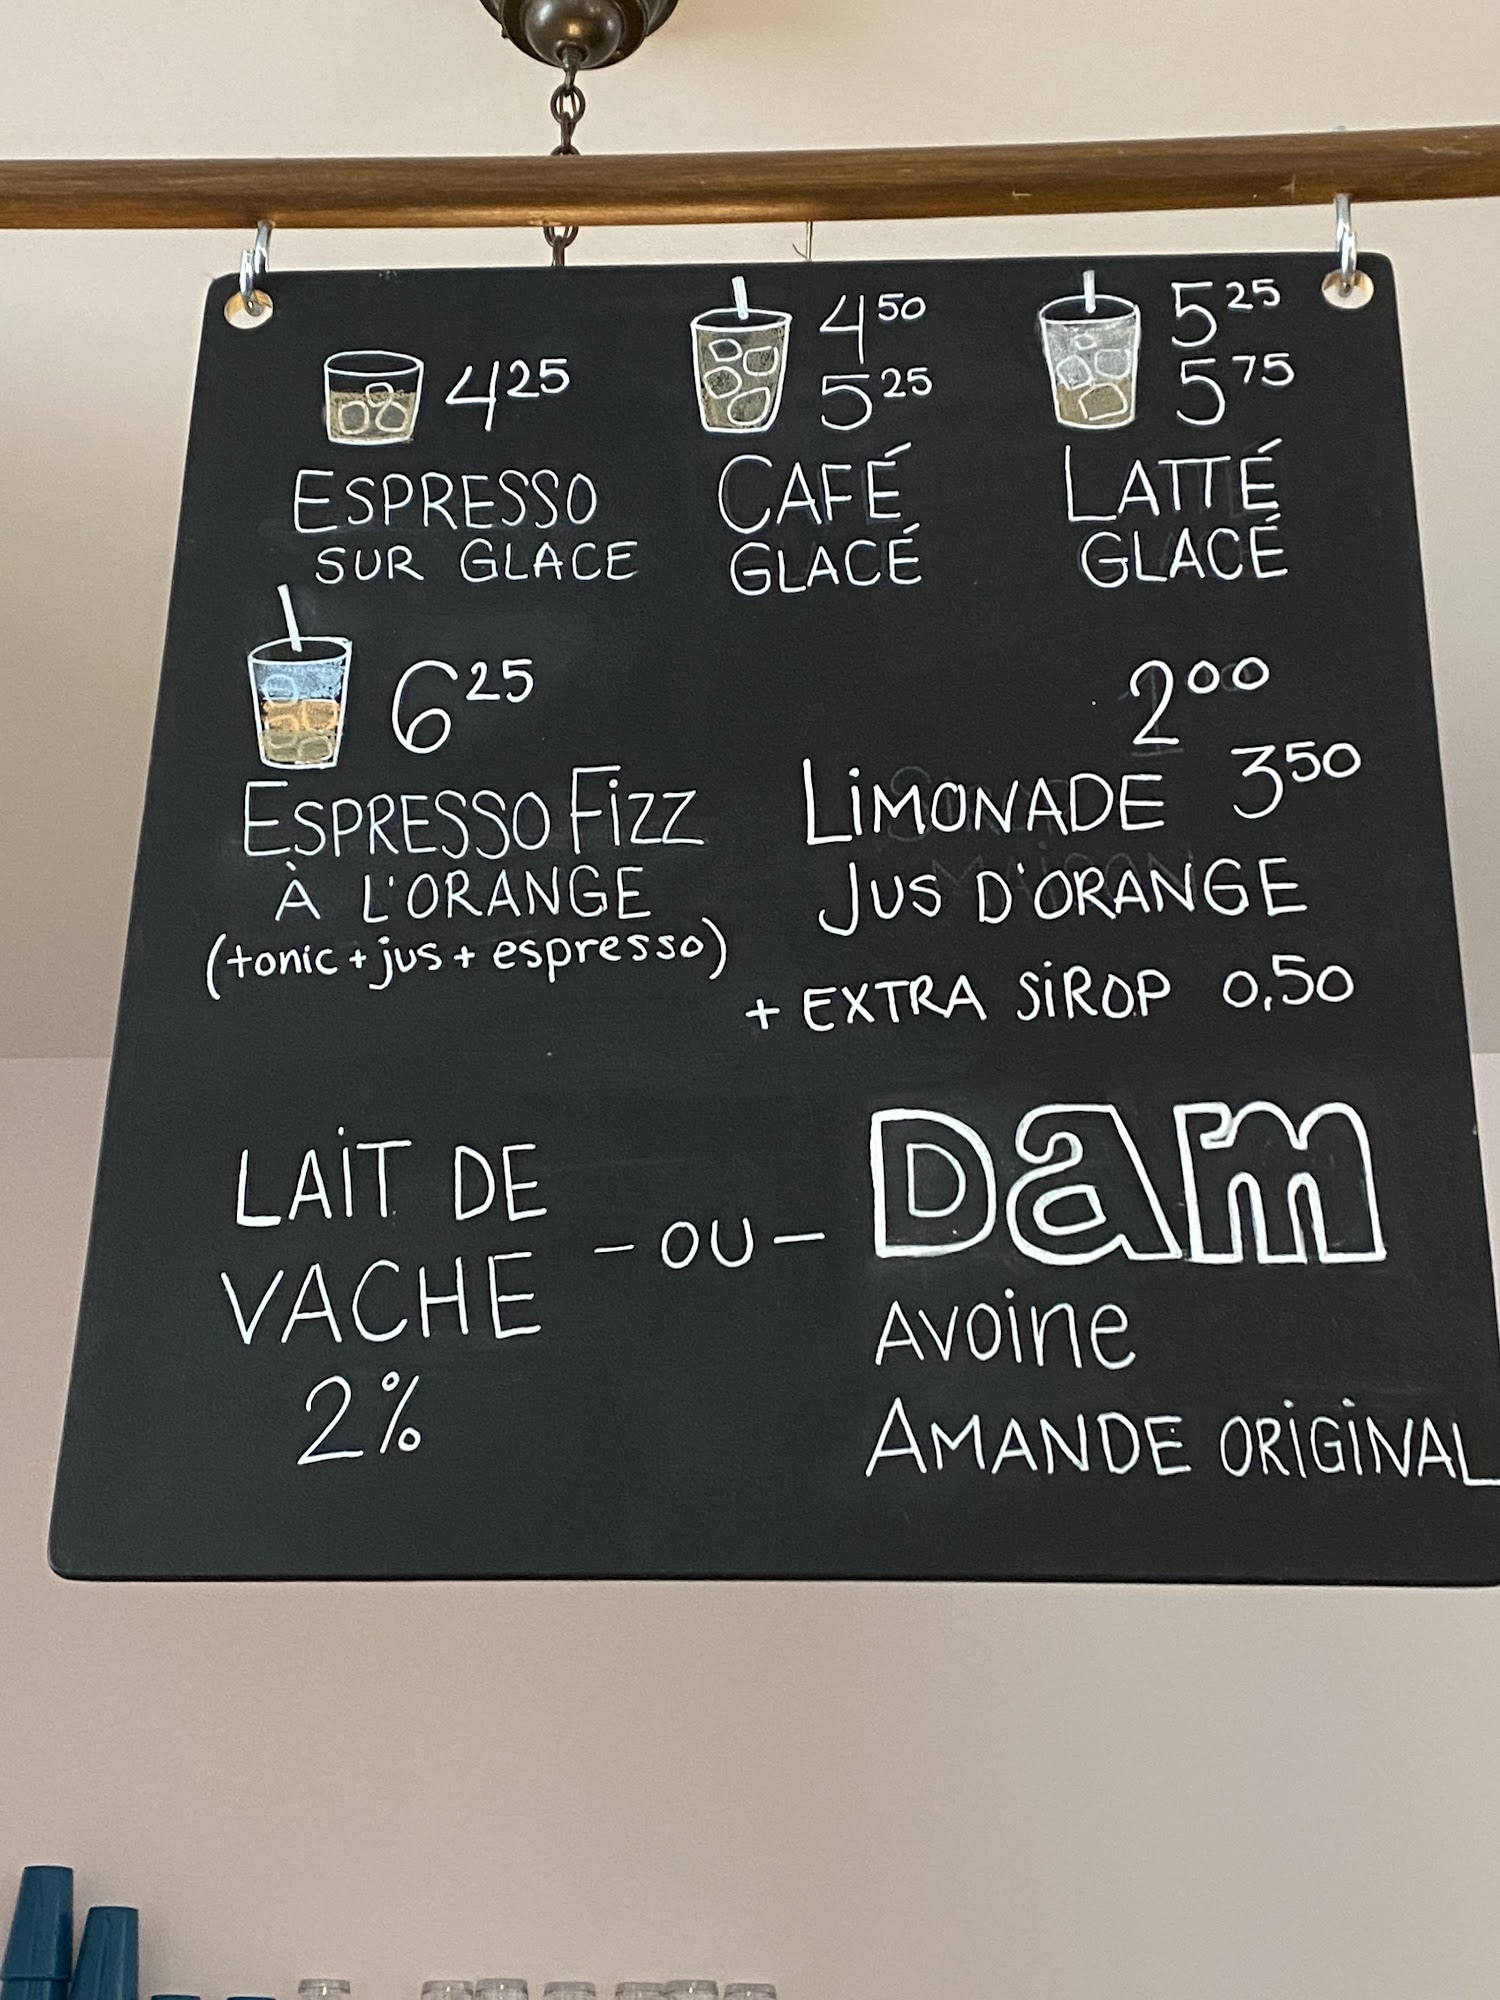 4²⁵
4⁵⁰
5²⁵
5²⁵
5⁷⁵
ESPRESSO
SUR GLACE
CAFÉ
GLACÉ
LATTÉ
GLACÉ
6²⁵
ESPRESSO FIZZ
À L'ORANGE
(tonic + jus + espresso)
2⁰⁰
LIMONADE 3⁵⁰
JUS D'ORANGE
+ EXTRA SIROP 0,50
LAIT DE
VACHE
2%
- OU -
Dam
AVOINE
AMANDE ORIGINAL